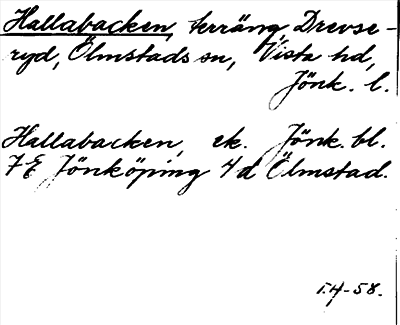 Hallabacken, terräng, Drevse-
ryd, Ölmstads sn, Vista hd,
Jönk. l.
Hallabacken, ek. Jönk. bl.
7E Jönköping 4d Ölmstad.
I.H-58.